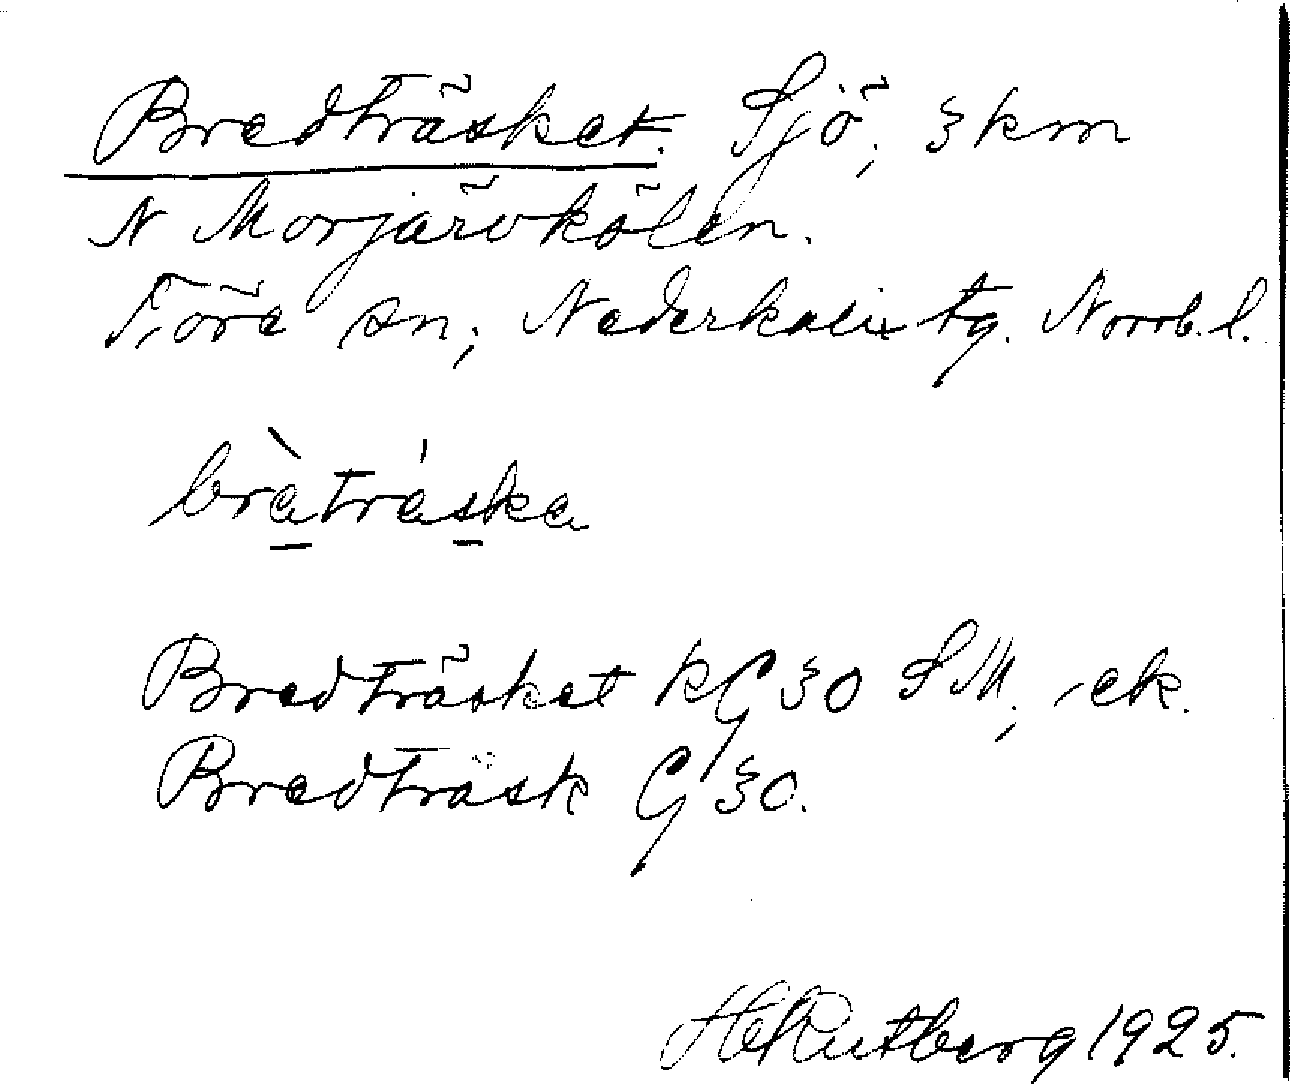 Bredträsket. Sjö, 3 km
N Morjärvkölen.
Töre sn, Nederkalix tg. Norrb. l.
bràtráska
Bredträsket KG 30 SM, ek.
Bredträsk G 30.
Hj Rutberg 1925.